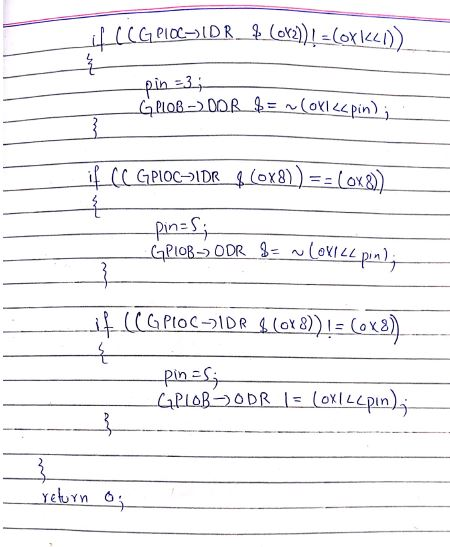 if ((GPIOC→IDR & (0x2)) != (0x1<<1))
{
pin =3;
GPIOB→ODR &= ~(0x1<<pin);
}
if ((GPIOC→IDR & (0x8)) == (0x8))
{
pin=5;
GPIOB→ODR &= ~(0x1<<pin);
}
if ((GPIOC→IDR & (0x8)) != (0x8))
{
pin =5;
GPIOB→ODR |= (0x1<<pin);
}
}
return 0;